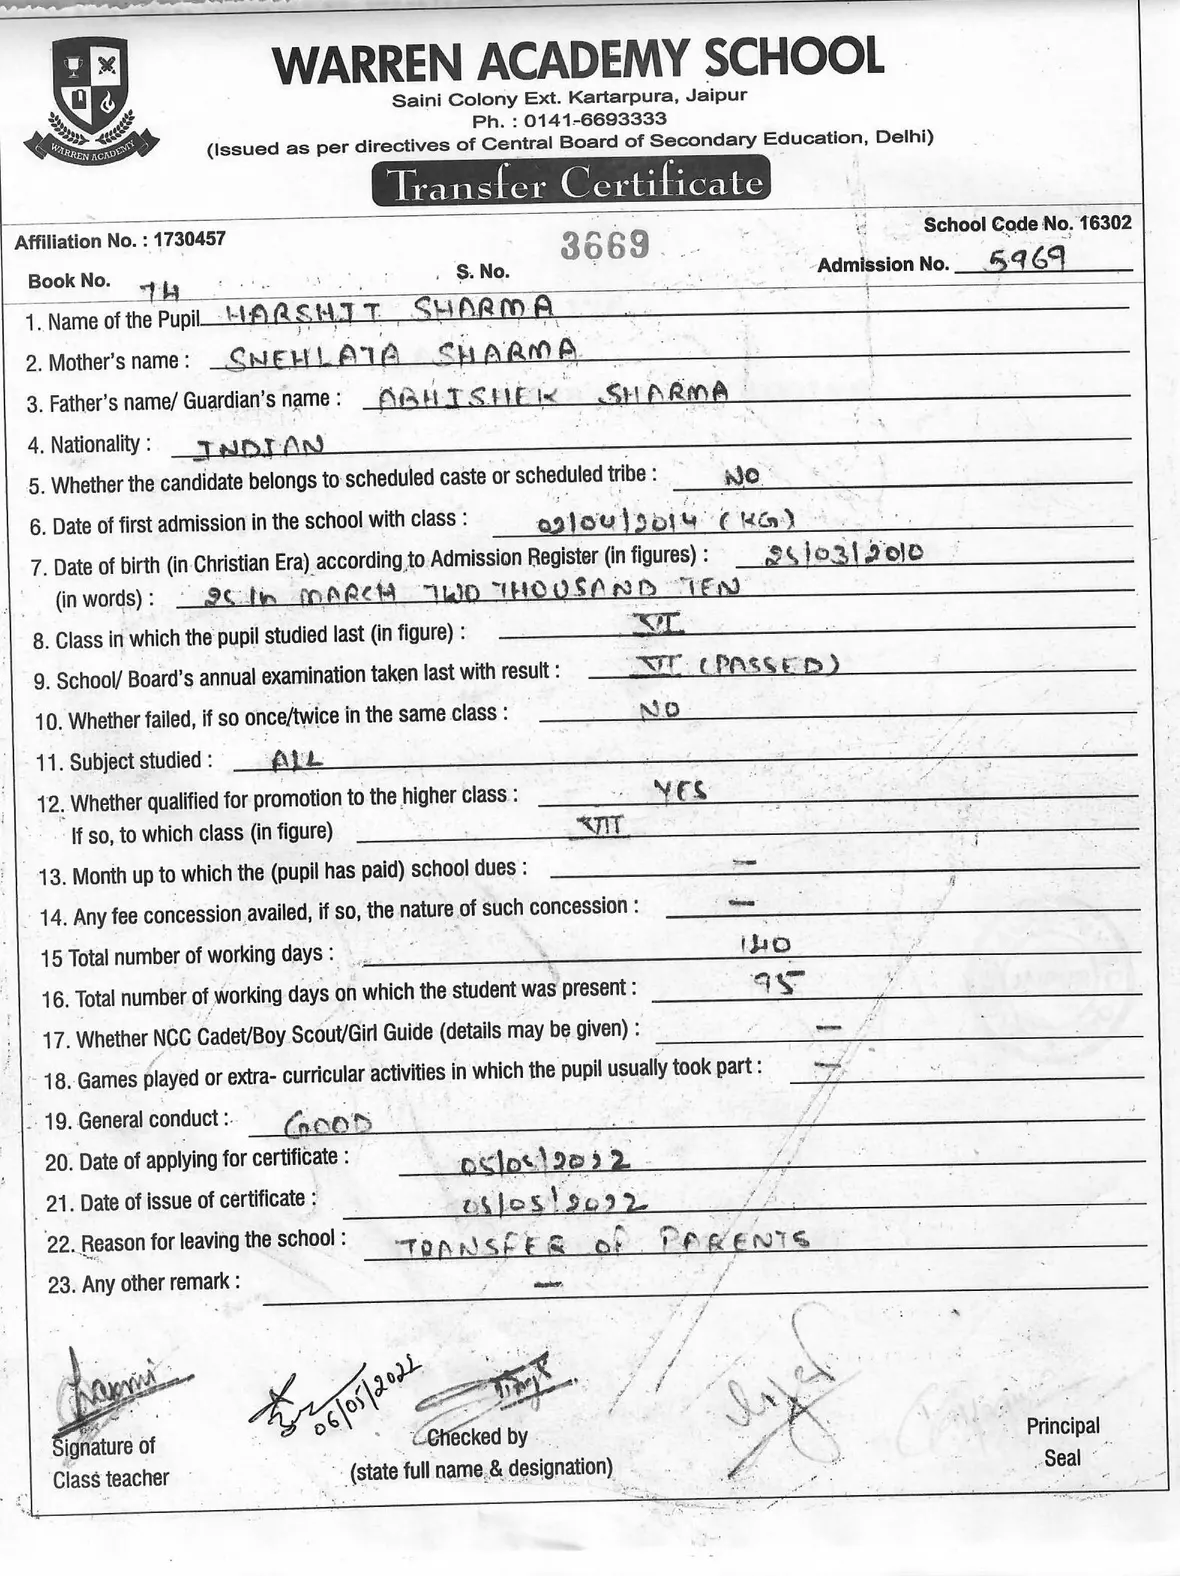 WARREN ACADEMY SCHOOL
Saini Colony Ext. Kartarpura, Jaipur
Ph. : 0141-6693333
(Issued as per directives of Central Board of Secondary Education, Delhi)
WARREN ACADEMY
Transfer Certificate
Affiliation No. : 1730457 3669 School Code No. 16302
Book No. 74 S. No. Admission No. 5969
1. Name of the Pupil HARSHIT SHARMA
2. Mother's name : SNEHLATA SHARMA
3. Father's name/ Guardian's name : ABHISHEK SHARMA
4. Nationality : INDIAN
5. Whether the candidate belongs to scheduled caste or scheduled tribe : NO
6. Date of first admission in the school with class : 02/04/2014 (KG)
7. Date of birth (in Christian Era) according to Admission Register (in figures) : 25/03/2010
(in words) : 25th MARCH TWO THOUSAND TEN
8. Class in which the pupil studied last (in figure) : VI
9. School/ Board's annual examination taken last with result : VI (PASSED)
10. Whether failed, if so once/twice in the same class : NO
11. Subject studied : ALL
12. Whether qualified for promotion to the higher class : YES
If so, to which class (in figure) VII
13. Month up to which the (pupil has paid) school dues : —
14. Any fee concession availed, if so, the nature of such concession : —
15 Total number of working days : 140
16. Total number of working days on which the student was present : 95
17. Whether NCC Cadet/Boy Scout/Girl Guide (details may be given) : —
18. Games played or extra- curricular activities in which the pupil usually took part : —
19. General conduct : GOOD
20. Date of applying for certificate : 05/05/2022
21. Date of issue of certificate : 05/05/2022
22. Reason for leaving the school : TRANSFER OF PARENTS
23. Any other remark : —
Laxmi
06/05/2022
Signature of Checked by Principal
Class teacher (state full name & designation) Seal